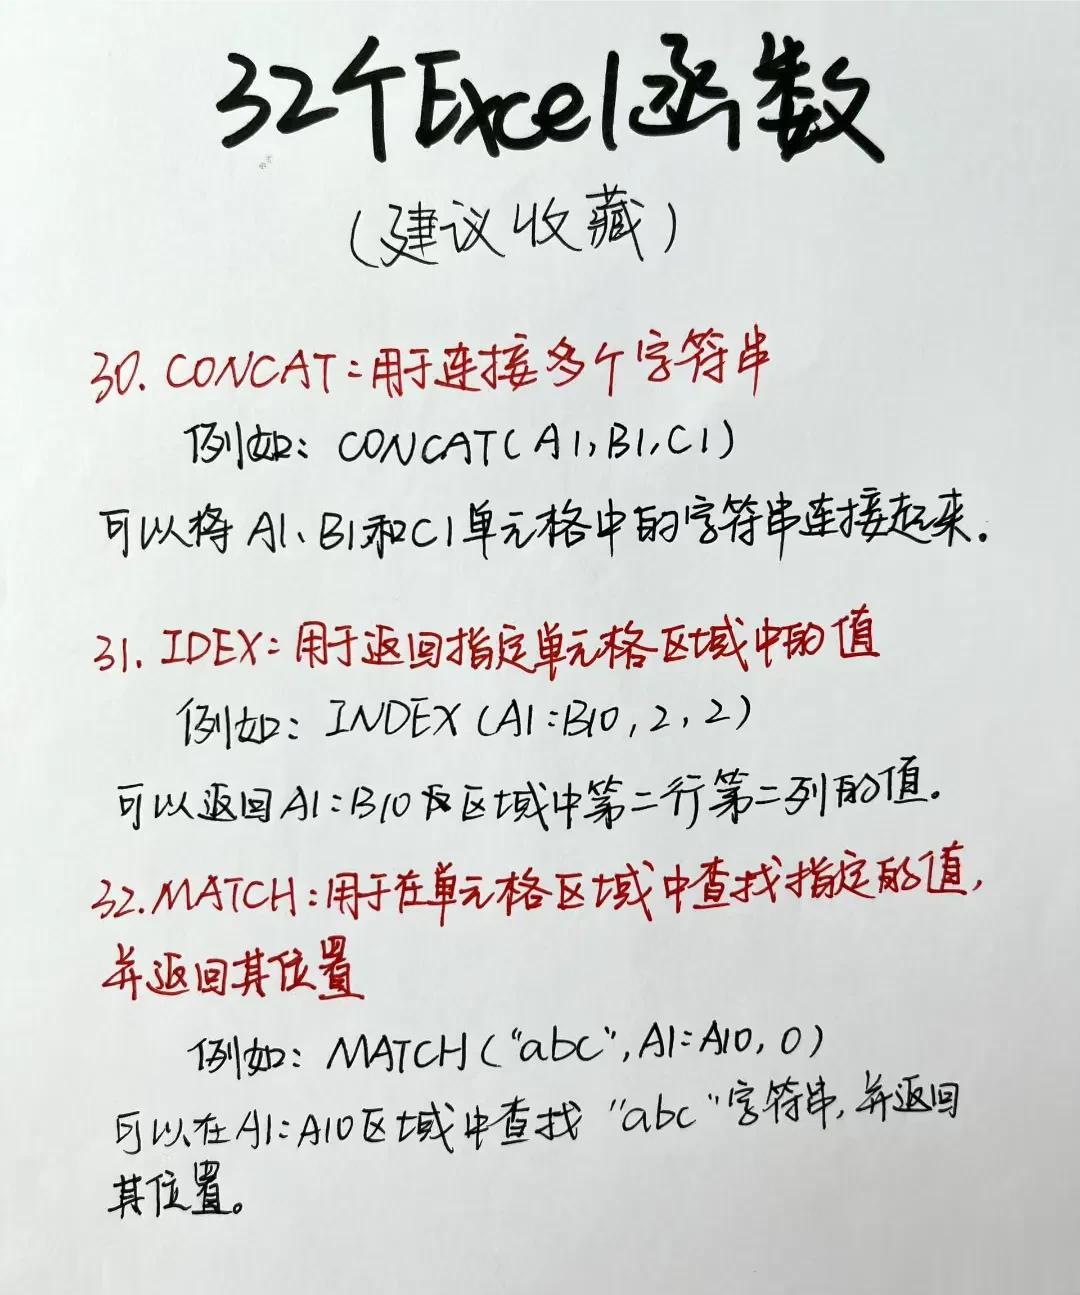 32个Excel函数
(建议收藏)
30. CONCAT:用于连接多个字符串
例如: CONCAT(A1,B1,C1)
可以将A1、B1和C1单元格中的字符串连接起来.
31. IDEX:用于返回指定单元格区域中的值
例如: INDEX(A1:B10,2,2)
可以返回A1:B10区域中第二行第二列的值.
32.MATCH:用于在单元格区域中查找指定的值,
并返回其位置
例如: MATCH("abc",A1:A10,0)
可以在A1:A10区域中查找"abc"字符串,并返回
其位置。